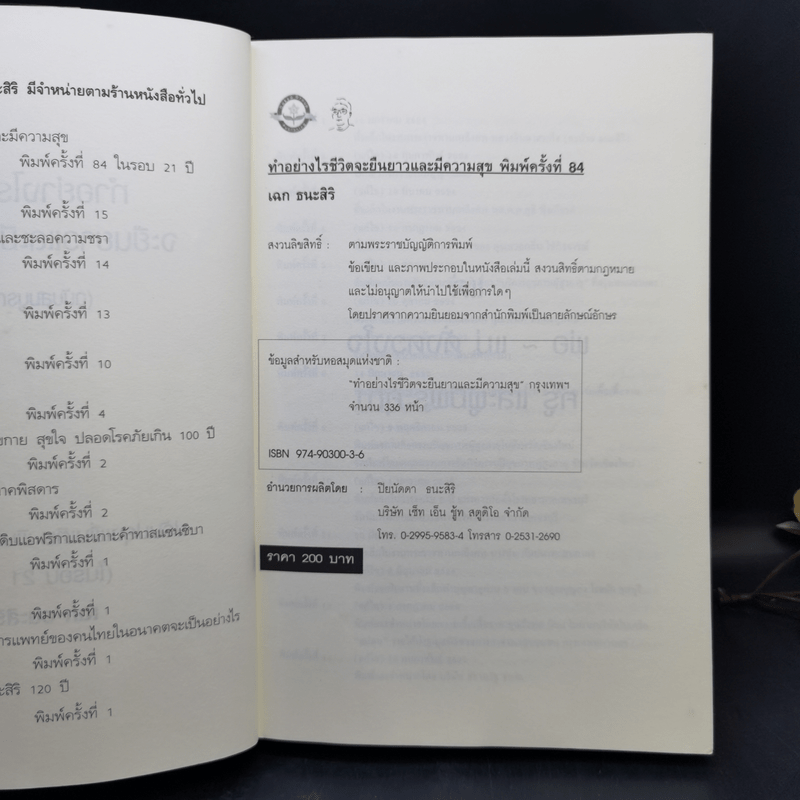 ะสิริ มีจำหน่ายตามร้านหนังสือทั่วไป
ละมีความสุข
พิมพ์ครั้งที่ 84 ในรอบ 21 ปี
พิมพ์ครั้งที่ 15
และชะลอความชรา
พิมพ์ครั้งที่ 14
พิมพ์ครั้งที่ 13
พิมพ์ครั้งที่ 10
พิมพ์ครั้งที่ 4
งกาย สุขใจ ปลอดโรคภัยเกิน 100 ปี
พิมพ์ครั้งที่ 2
าคพิสดาร
พิมพ์ครั้งที่ 2
ดิบแอฟริกาและเกาะค้าทาสแซนซิบา
พิมพ์ครั้งที่ 1
พิมพ์ครั้งที่ 1
ารแพทย์ของคนไทยในอนาคตจะเป็นอย่างไร
พิมพ์ครั้งที่ 1
ะสิริ 120 ปี
พิมพ์ครั้งที่ 1
ทำอย่างไรชีวิตจะยืนยาวและมีความสุข พิมพ์ครั้งที่ 84
เฉก ธนะสิริ
สงวนลิขสิทธิ์ : ตามพระราชบัญญัติการพิมพ์
ข้อเขียน และภาพประกอบในหนังสือเล่มนี้ สงวนสิทธิ์ตามกฎหมาย
และไม่อนุญาตให้นำไปใช้เพื่อการใดๆ
โดยปราศจากความยินยอมจากสำนักพิมพ์เป็นลายลักษณ์อักษร
ข้อมูลสำหรับหอสมุดแห่งชาติ :
"ทำอย่างไรชีวิตจะยืนยาวและมีความสุข" กรุงเทพฯ
จำนวน 336 หน้า
ISBN 974-90300-3-6
อำนวยการผลิตโดย : ปิยนัดดา ธนะสิริ
บริษัท เซ็ท เอ็น ชู้ท สตูดิโอ จำกัด
โทร. 0-2995-9583-4 โทรสาร 0-2531-2690
ราคา 200 บาท